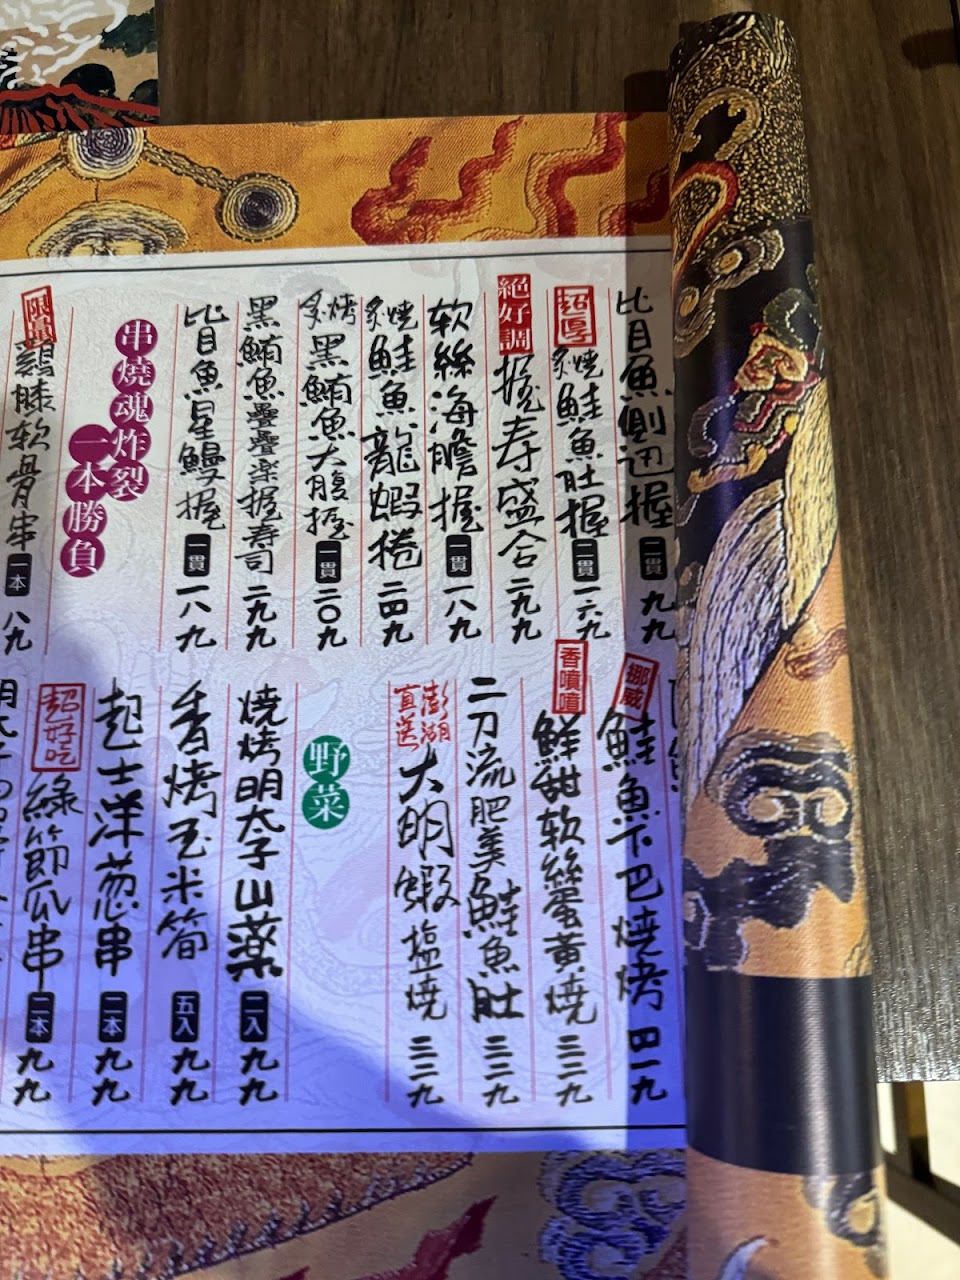 比目魚側迴握 二貫 九九
超厚 炙燒鮭魚肚握 二貫 一六九
絕好調 握寿盛合 二九九
软絲海膽握 一貫 一八九
炙燒鮭魚龍蝦捲 二四九
炙烤黑鮪魚大腹握 一貫 二〇九
黑鮪魚疊疊楽握寿司 二九九
比目魚星鰻握 一貫 一八九
串燒魂炸裂
一本勝負
限量 鷄膝软骨串 一本 八九
挪威 鮭魚下巴燒烤 四一九
香噴噴 鮮甜软絲蛋黄燒 三三九
二刀流肥美鮭魚肚 三三九
澎湖直送 大明蝦塩燒 三三九
野菜
燒烤明太子山薬 二入 九九
香烤玉米筍 五入 九九
起士洋葱串 二本 九九
超好吃 綠節瓜串 二本 九九